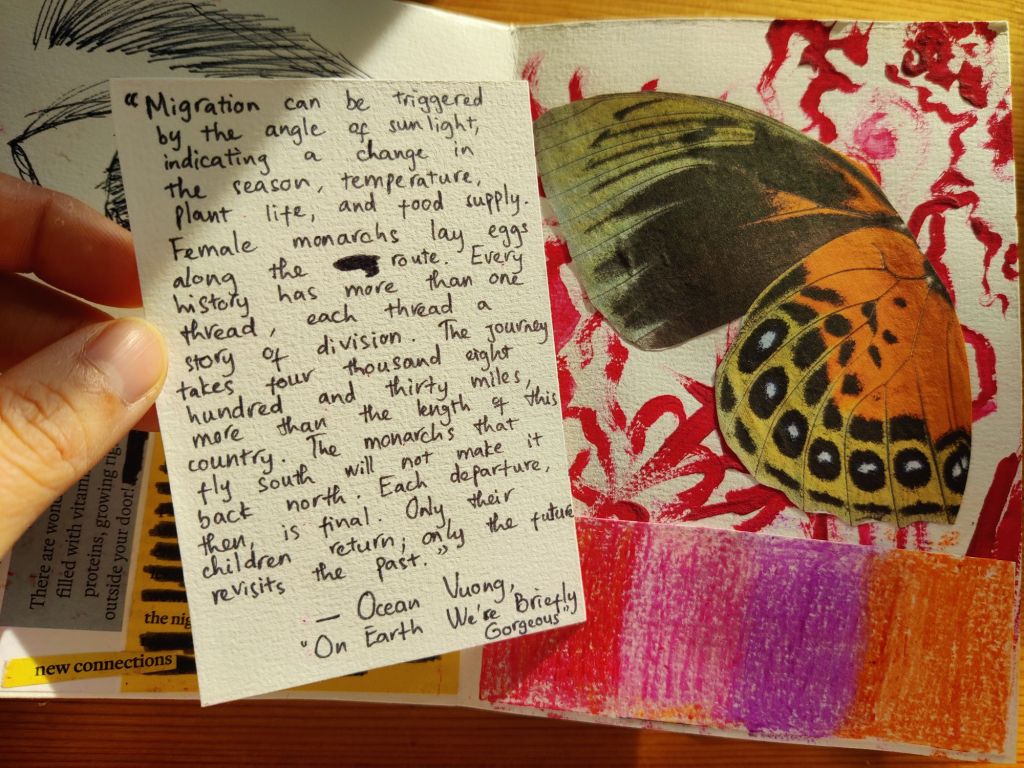 "Migration can be triggered
by the angle of sunlight,
indicating a change in
the season, temperature,
plant life, and food supply.
Female monarchs lay eggs
along the route. Every
history has more than one
thread, each thread a
story of division. The journey
takes four thousand eight
hundred and thirty miles,
more than the length of this
country. The monarchs that
fly south will not make it
back north. Each departure,
then, is final. Only their
children return; only the future
revisits the past."
— Ocean Vuong,
"On Earth We're Briefly
Gorgeous"
There are
filled with
proteins, growing
outside your door!
the
new connections